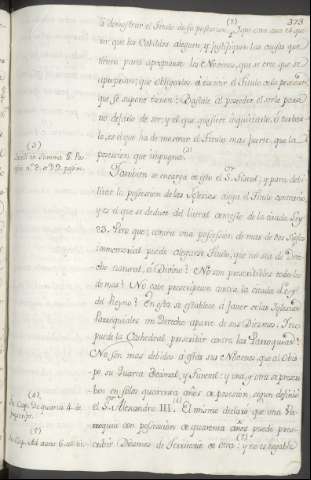 á demostrar el Titulo de su posesion (2) Igno otra cosa es que
rer que los Cabildos aleguen, y justifiquen las causas que
tienen para apropiarse los Novenos, que se cree que se
apropian; que obligarlos á exivir el Titulo de la posesion
que se supone tienen. Bastale al posedor el serlo para
no dejarlo de ser; y el que quisiere inquietarle, ó turbar
lo, es el que ha de mostrar el Titulo mas fuerte, que la
posesion que impugna. (3)
Tambien se encarga en esto el S.or Fiscal, y para debi
litar la posesion de las Iglesias alega el Titulo contrario
y es el que se deduce del literal contesto de la citada Ley
23. Pero que; contra una posesion de mas de dos siglos
immemorial puede alegarse Titulo, que no sea de Dere
cho natural, ó Divino? No son prescriptibles todos los
demas? No cabe prescripcion contra la citada Ley
del Reyno? En esta se establece á favor de las Iglesias
Parroquiales un Derecho aparte de sus Diezmos. Y no
puede la Cathedral prescribir contra las Parroquias?
No son mas debidos á estas sus Novenos, que al Obis
po, su Quarta Decimal, y Funeral: y una, y otra se prescri
ben en solos quarenta años de posesion, segun definió
el S.or Alexandro III. (4) El mismo declaró que una Par
roquia con posesion de quarenta años puede pres
cribir Diezmos de Feligresia de otra: (5) y no es loable
(3)
(4)
de Cap. De quarta 4. de
(5)
de Cap. Ad aures 6. eod. tit.
373